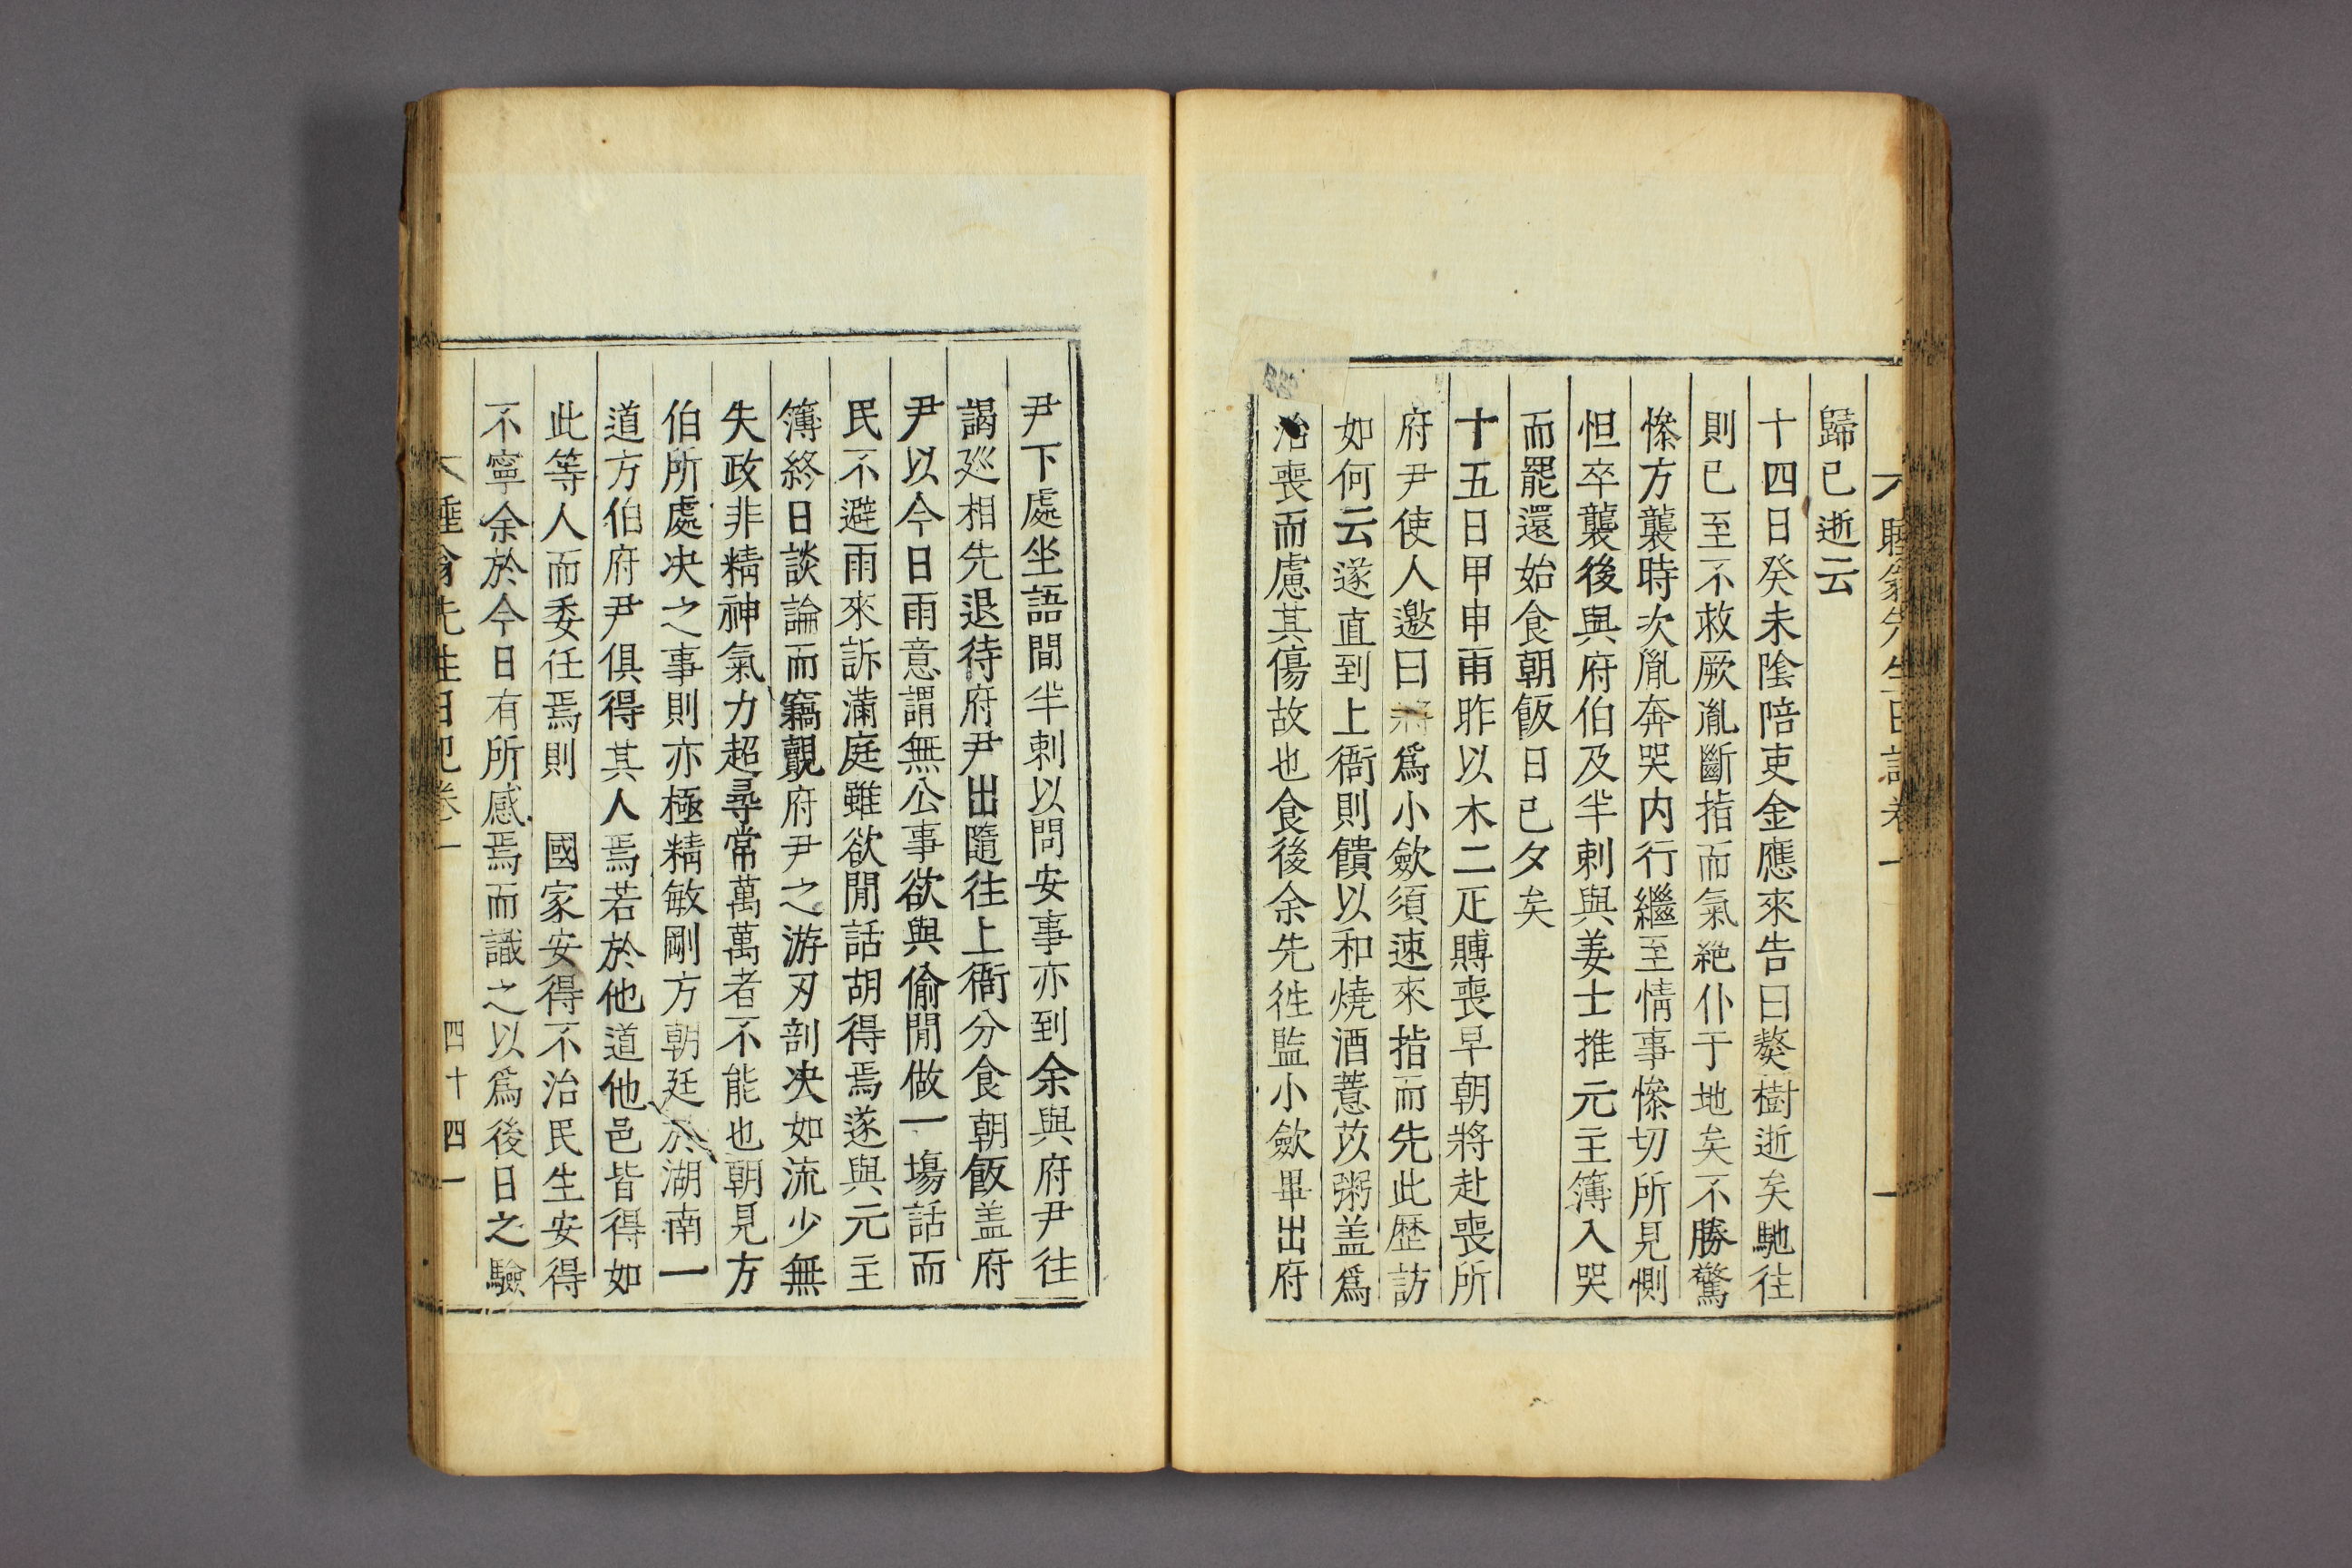 睡翁先生日記卷一
歸已逝云
十四日癸未陰陪吏金應來告曰獒樹逝矣馳往
則已至不救厥胤斷指而氣絶仆于地矣不勝驚
慘方襲時次胤奔哭内行繼至情事慘切所見惻
怛卒襲後與府伯及半刺與姜士推元主簿入哭
而罷還始食朝飯日已夕矣
十五日甲申雨昨以木二疋賻喪早朝將赴喪所
府尹使人邀曰將爲小斂須速來指而先此歷訪
如何云遂直到上衙則饋以和燒酒薏苡粥盖爲
治喪而慮其傷故也食後余先徃監小斂畢出府
尹下處坐語間半刺以問安事亦到余與府尹往
謁廵相先退待府尹出隨往上衙分食朝飯盖府
尹以今日雨意謂無公事欲與偷閒做一塲話而
民不避雨來訴滿庭雖欲閒話胡得焉遂與元主
簿終日談論而竊覿府尹之游刃剖决如流少無
失政非精神氣力超尋常萬萬者不能也朝見方
伯所處决之事則亦極精敏剛方朝廷於湖南一
道方伯府尹俱得其人焉若於他道他邑皆得如
此等人而委任焉則　國家安得不治民生安得
不寧余於今日有所感焉而識之以爲後日之驗
睡翁先生日記卷一
四十四